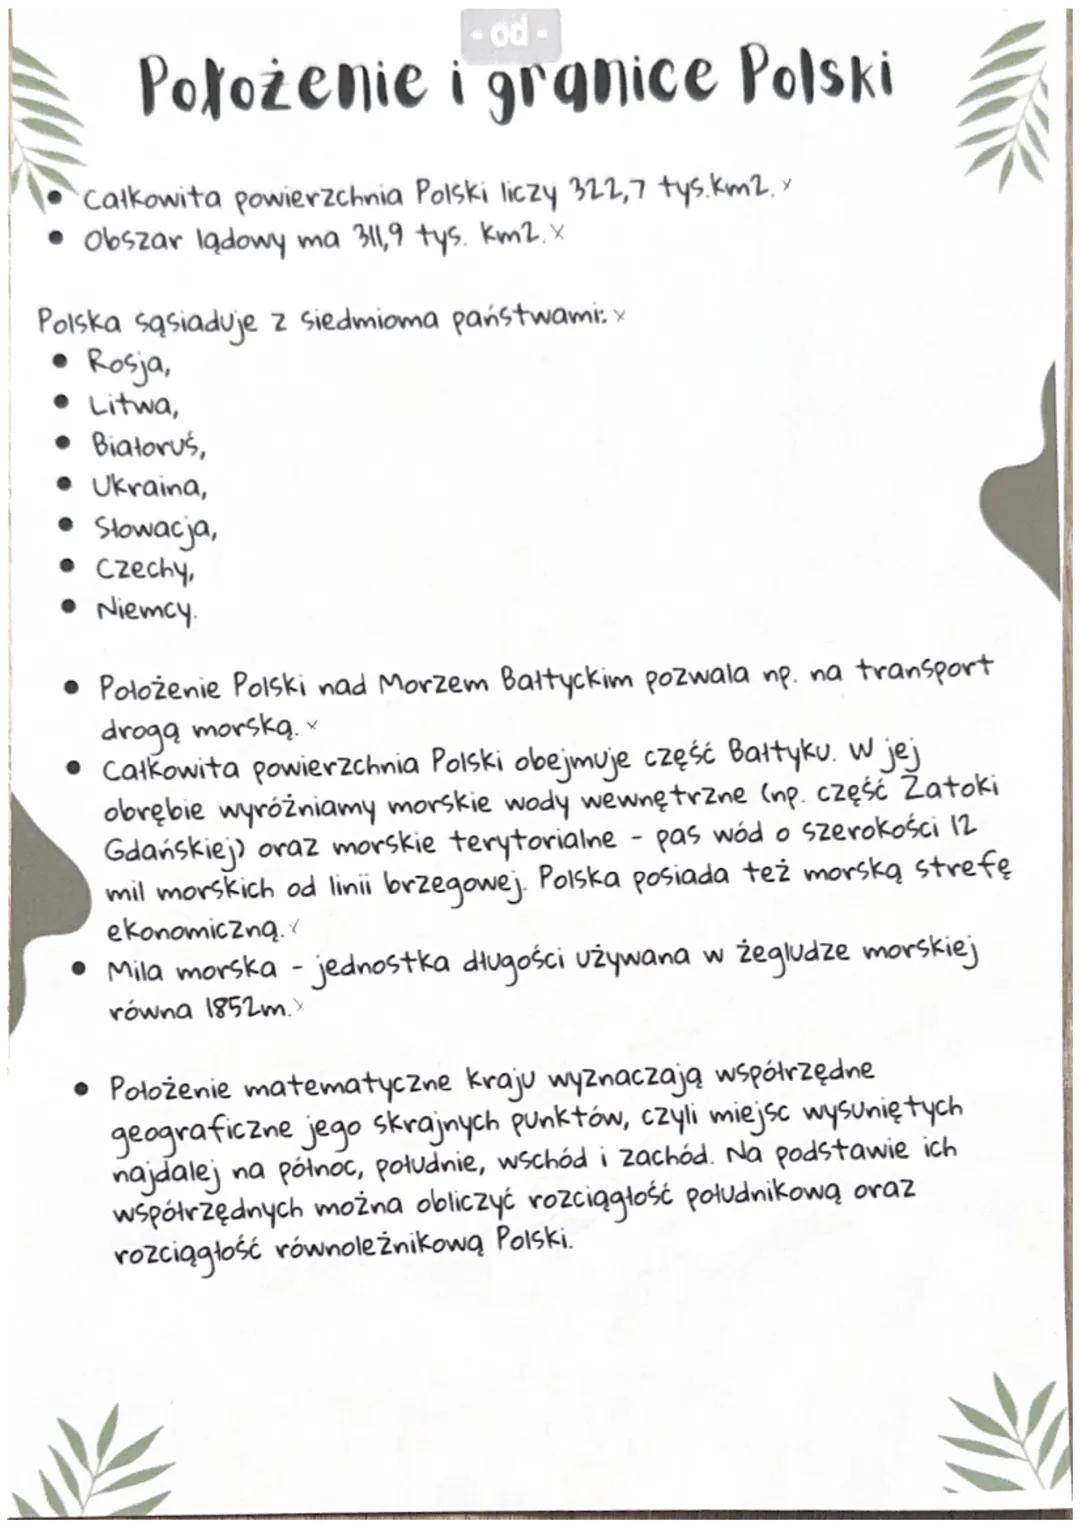 - od -
Położenie i granice Polski
• Całkowita powierzchnia Polski liczy 322,7 tys.km2. x
• Obszar lądowy ma 311,9 tys. km2. x
Polska sąsiaduje z siedmioma państwami: x
• Rosja,
• Litwa,
• Białoruś,
• Ukraina,
• Słowacja,
• Czechy,
• Niemcy.
• Położenie Polski nad Morzem Bałtyckim pozwala np. na transport
drogą morską. x
• Całkowita powierzchnia Polski obejmuje część Bałtyku. W jej
obrębie wyróżniamy morskie wody wewnętrzne (np. część Zatoki
Gdańskiej) oraz morskie terytorialne - pas wód o szerokości 12
mil morskich od linii brzegowej. Polska posiada też morską strefę
ekonomiczną. x
• Mila morska - jednostka długości używana w żegludze morskiej
równa 1852m. x
• Położenie matematyczne kraju wyznaczają współrzędne
geograficzne jego skrajnych punktów, czyli miejsc wysuniętych
najdalej na północ, południe, wschód i zachód. Na podstawie ich
współrzędnych można obliczyć rozciągłość południkową oraz
rozciągłość równoleżnikową Polski.